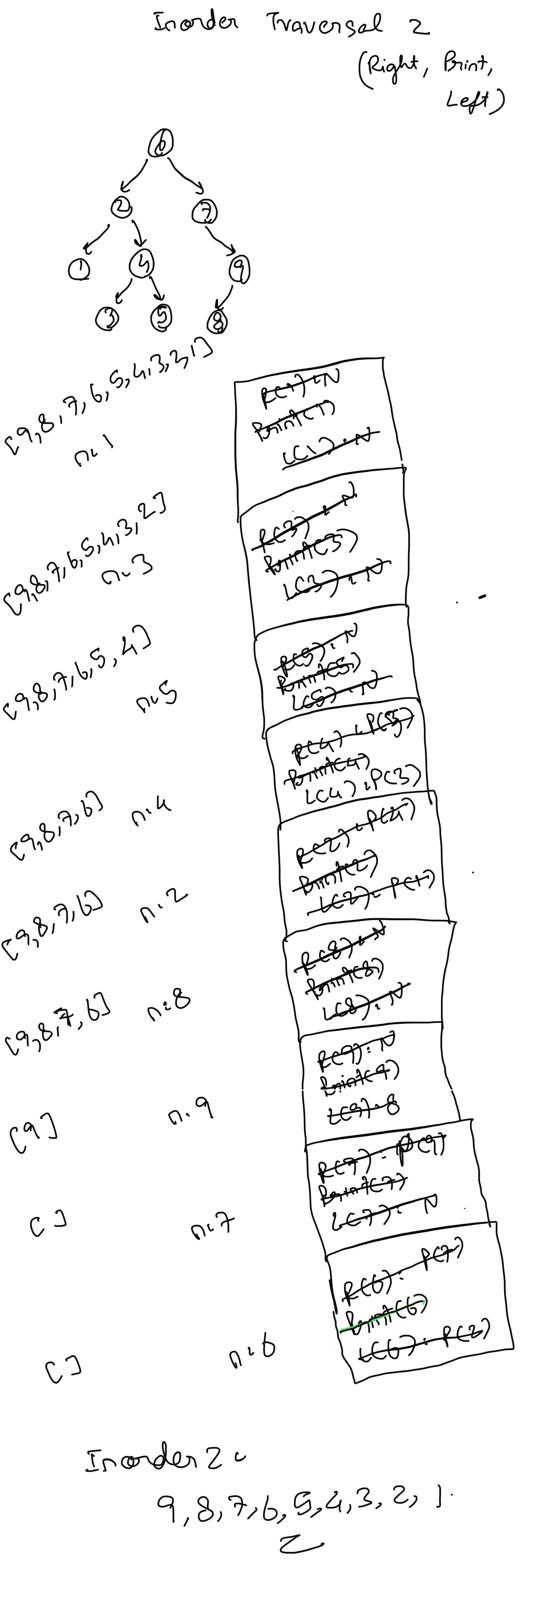 Inorder Traversal 2
(Right, Print,
Left)
6
2 7
1 4 9
3 5 8
[9,8,7,6,5,4,3,2,1]
n:1
R(1):N
Print(1)
L(1):N
[9,8,7,6,5,4,3,2]
n:3
R(3):N
Print(3)
L(3):N
[9,8,7,6,5,4]
n:5
R(5):N
Print(5)
L(5):N
[9,8,7,6]
n:4
R(4):P(5)
Print(4)
L(4):P(3)
[9,8,7,6]
n:2
R(2):P(4)
Print(2)
L(2):P(1)
[9,8,7,6]
n:8
R(8):N
Print(8)
L(8):N
[9]
n:9
R(9):N
Print(9)
L(9):8
[]
n:7
R(7):P(9)
Print(7)
L(7):N
[]
n:6
R(6):P(7)
Print(6)
L(6):P(2)
Inorder 2:
9,8,7,6,5,4,3,2,1.